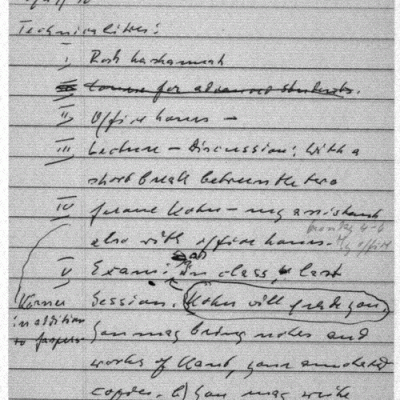 Technicalities:
I Rosh hashannah
Course for advanced students.
II Office hours —
III Lecture — Discussion: with a
short break between the two
IV Jerome Kohn — my assistant
also with office hours. Monday 4-6 My office
V Exam: a) In class, last
Session. Kohn will grade you.
in addition
to paper
You may bring notes and
works of Kant, your annotated
copies. b) You may write